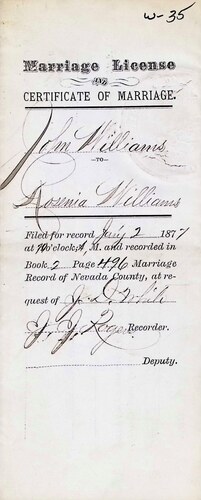 W-35
Marriage License
OR
CERTIFICATE OF MARRIAGE.
John Williams
—TO—
Rosenia Williams
Filed for record Jany 2 1877
at 10 o'clock, A. M. and recorded in
Book 2 Page 496 Marriage
Record of Nevada County, at re-
quest of J. D. White
J. J. Rogers Recorder.
Deputy.